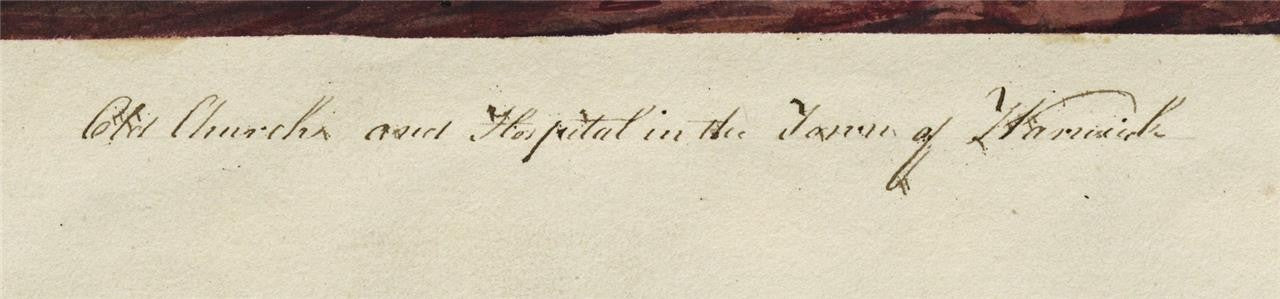 Old Church and Hospital in the Town of Warwick